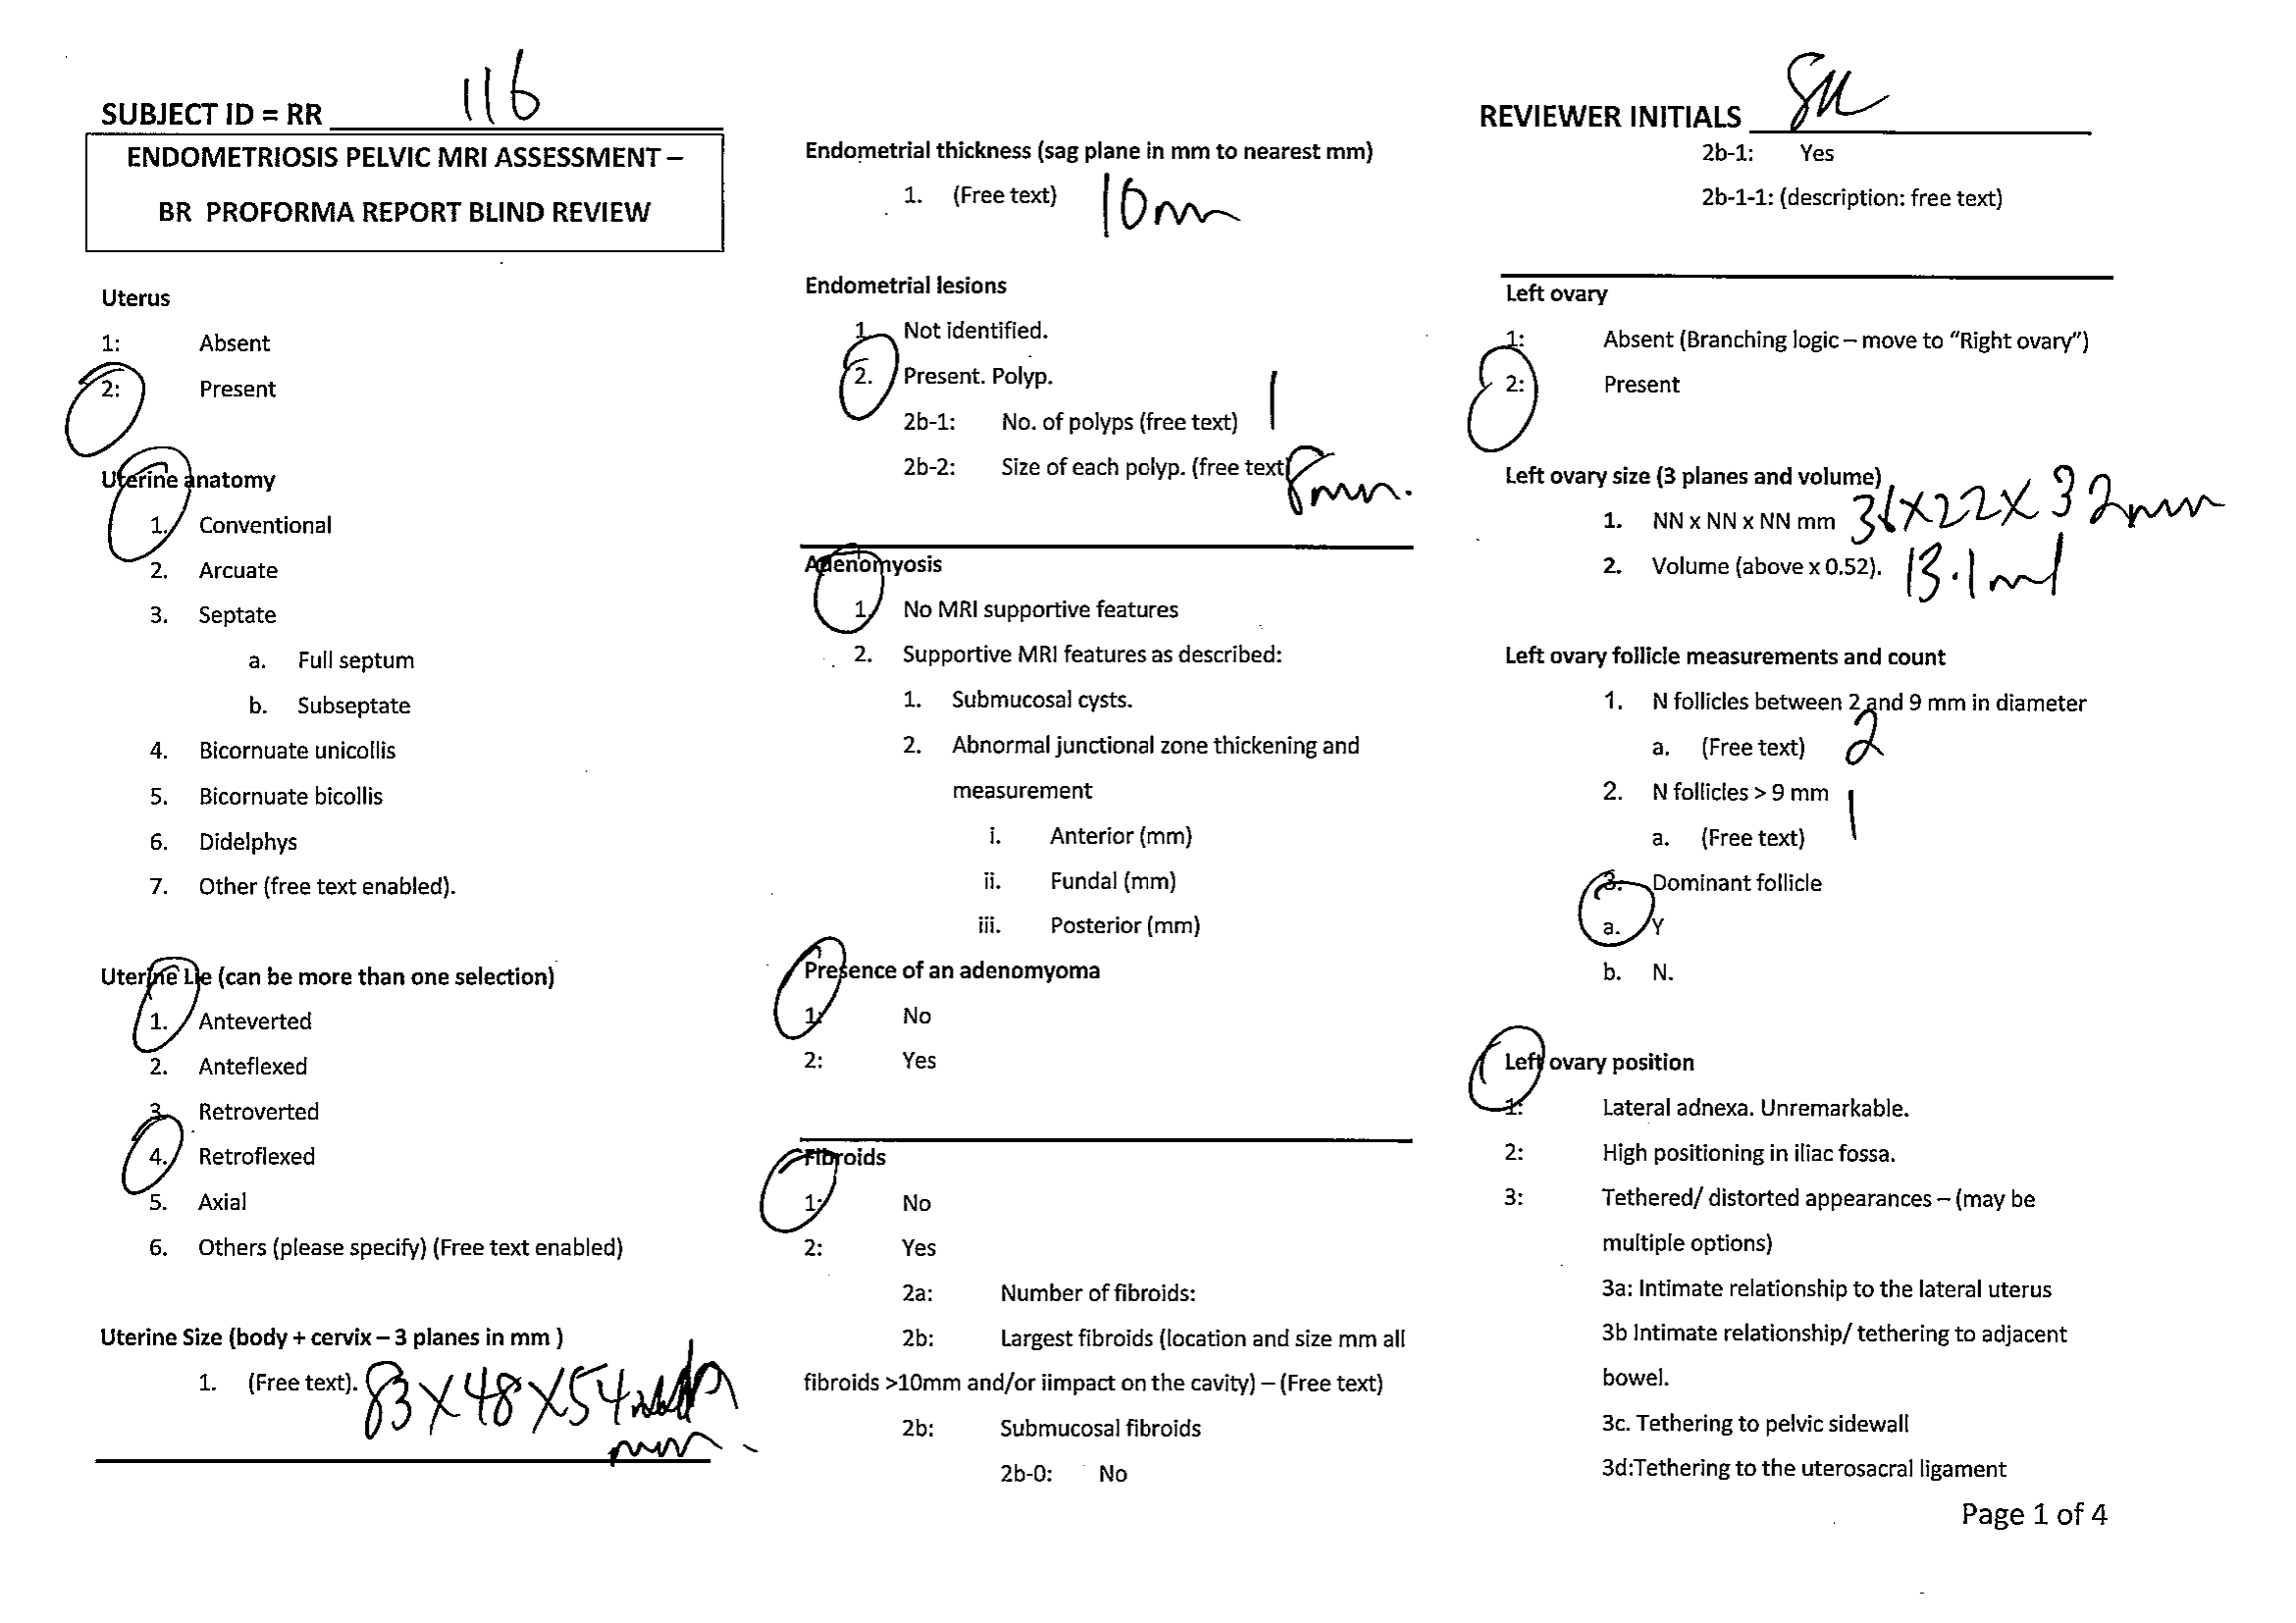 SUBJECT ID = RR 116
ENDOMETRIOSIS PELVIC MRI ASSESSMENT –
BR PROFORMA REPORT BLIND REVIEW
Uterus
1: Absent
2: Present
Uterine anatomy
1. Conventional
2. Arcuate
3. Septate
a. Full septum
b. Subseptate
4. Bicornuate unicollis
5. Bicornuate bicollis
6. Didelphys
7. Other (free text enabled).
Uterine Lie (can be more than one selection)
1. Anteverted
2. Anteflexed
3. Retroverted
4. Retroflexed
5. Axial
6. Others (please specify) (Free text enabled)
Uterine Size (body + cervix – 3 planes in mm )
1. (Free text). 83 X 48 X 54
mm.
Endometrial thickness (sag plane in mm to nearest mm)
1. (Free text) 10mm
Endometrial lesions
1. Not identified.
2. Present. Polyp.
2b-1: No. of polyps (free text) 1
2b-2: Size of each polyp. (free text 8mm.
Adenomyosis
1. No MRI supportive features
2. Supportive MRI features as described:
1. Submucosal cysts.
2. Abnormal junctional zone thickening and
measurement
i. Anterior (mm)
ii. Fundal (mm)
iii. Posterior (mm)
Presence of an adenomyoma
1: No
2: Yes
Fibroids
1: No
2: Yes
2a: Number of fibroids:
2b: Largest fibroids (location and size mm all
fibroids >10mm and/or iimpact on the cavity) – (Free text)
2b: Submucosal fibroids
2b-0: No
REVIEWER INITIALS
2b-1: Yes
2b-1-1: (description: free text)
Left ovary
1: Absent (Branching logic – move to “Right ovary”)
2: Present
Left ovary size (3 planes and volume)
1. NN x NN x NN mm x 22 x 32mm
2. Volume (above x 0.52). 13.1ml
Left ovary follicle measurements and count
1. N follicles between 2 and 9 mm in diameter
a. (Free text) 2
2. N follicles > 9 mm 1
a. (Free text)
3. Dominant follicle
a. Y
b. N.
Left ovary position
1: Lateral adnexa. Unremarkable.
2: High positioning in iliac fossa.
3: Tethered/ distorted appearances – (may be
multiple options)
3a: Intimate relationship to the lateral uterus
3b Intimate relationship/ tethering to adjacent
bowel.
3c. Tethering to pelvic sidewall
3d:Tethering to the uterosacral ligament
Page 1 of 4